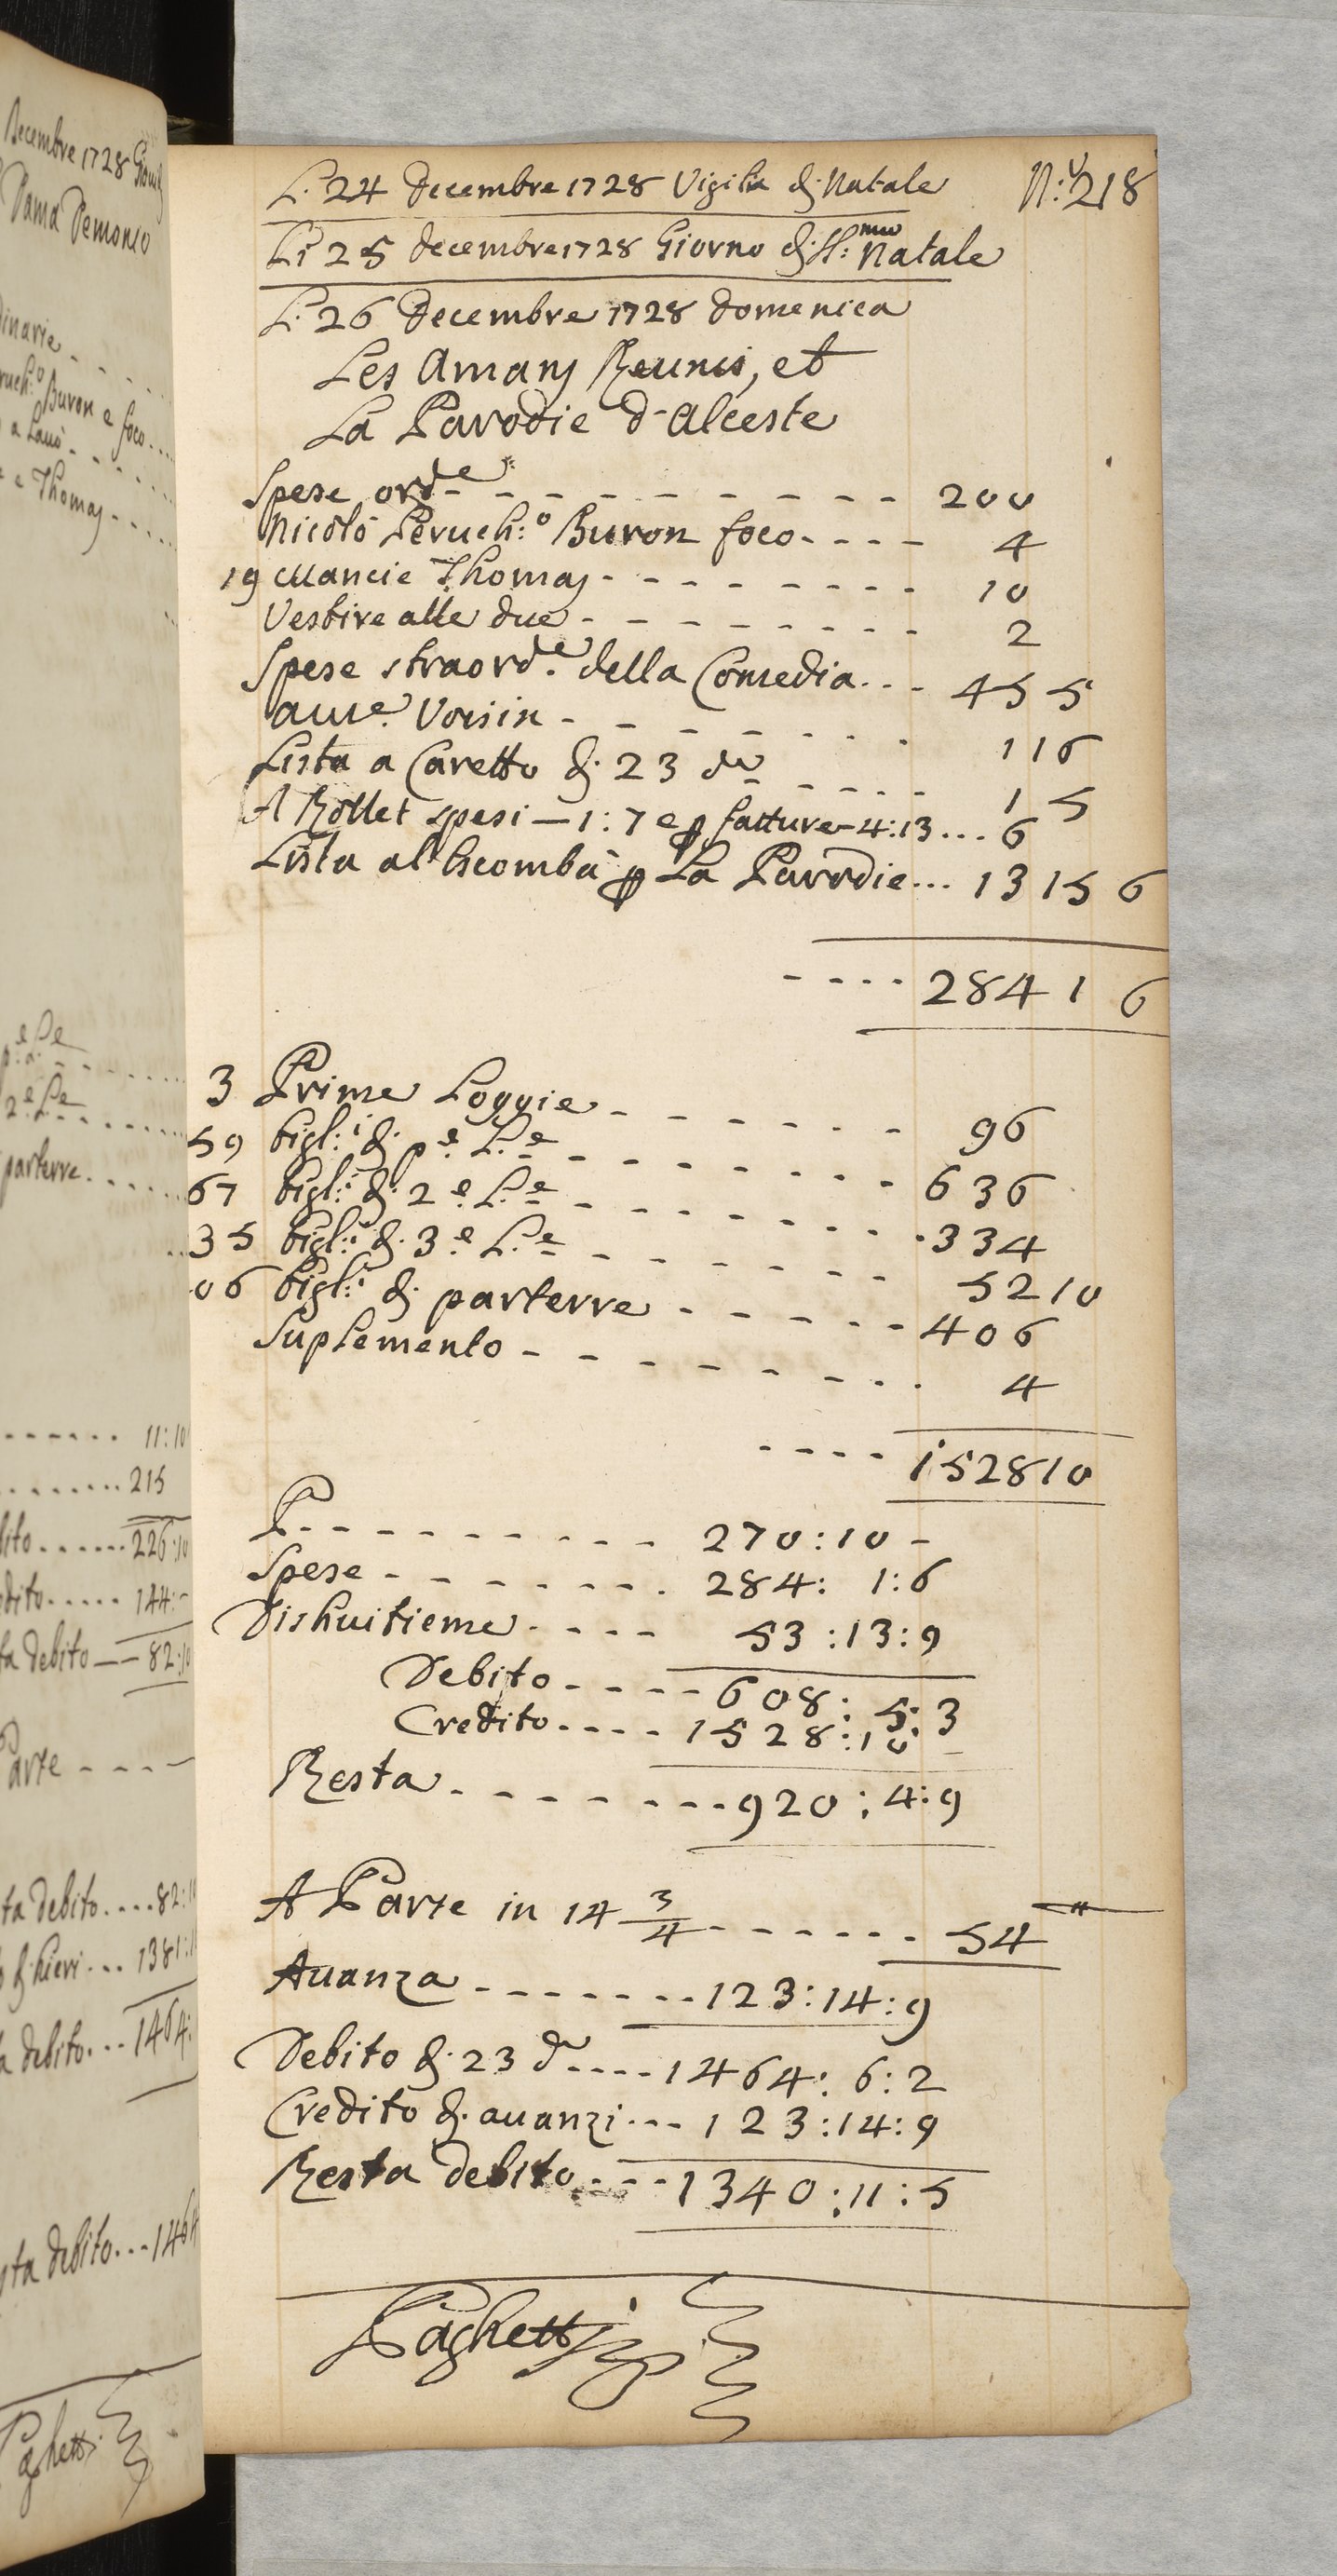 Decembre 1728 Giovedi
Dama Demonio
dinarie
Peruch:o Buron e foco
a Laué
e Thomas
pe: Le
2e: Le
parterre
11:10
215
bito 226:10
dito 144:-
ta debito 82:10
Parte
ta debito 82:1
di hieri 1381:1
a debito 1464:
sta debito 1464
Paghetti
Li 24 decembre 1728 Vigilia di Natale N:o 218
Li 25 decembre 1728 Giorno di SS:mo Natale
Li 26 decembre 1728 domenica
Les Amans Reunis, et
La Parodie d'Alceste
Spese ord:e 200
Nicolò Peruch:o Buron foco 4
19 Mancie Thomas 10
Vestire alle due 2
Spese straord:e della Comedia 45 5
a Voisin 11 6
Lista a Caretto di 23 do 1 5
A Rollet spesi — 1:7 e p fatture — 4:13 6
Lista al Gheomba p La Parodie 13 15 6
284 1 6
3 Prime Loggie 96
59 bigl:i di p:e L:e 636
67 bigl:i di 2:e L:e 334
35 bigl:i di 3:e L:e 52 10
06 bigl:i di parterre 406
Suplemento 4
1528 10
P 270:10 -
Spese 284: 1:6
Dishuitieme 53:13:9
Debito 608: 5: 3
Credito 1528:10: -
Resta 920: 4:9
A Parte in 14 3/4 54
Auanza 123:14:9
Debito di 23 do 1464: 6:2
Credito di auanzi 123:14:9
Resta debito 1340:11:5
Paghetti